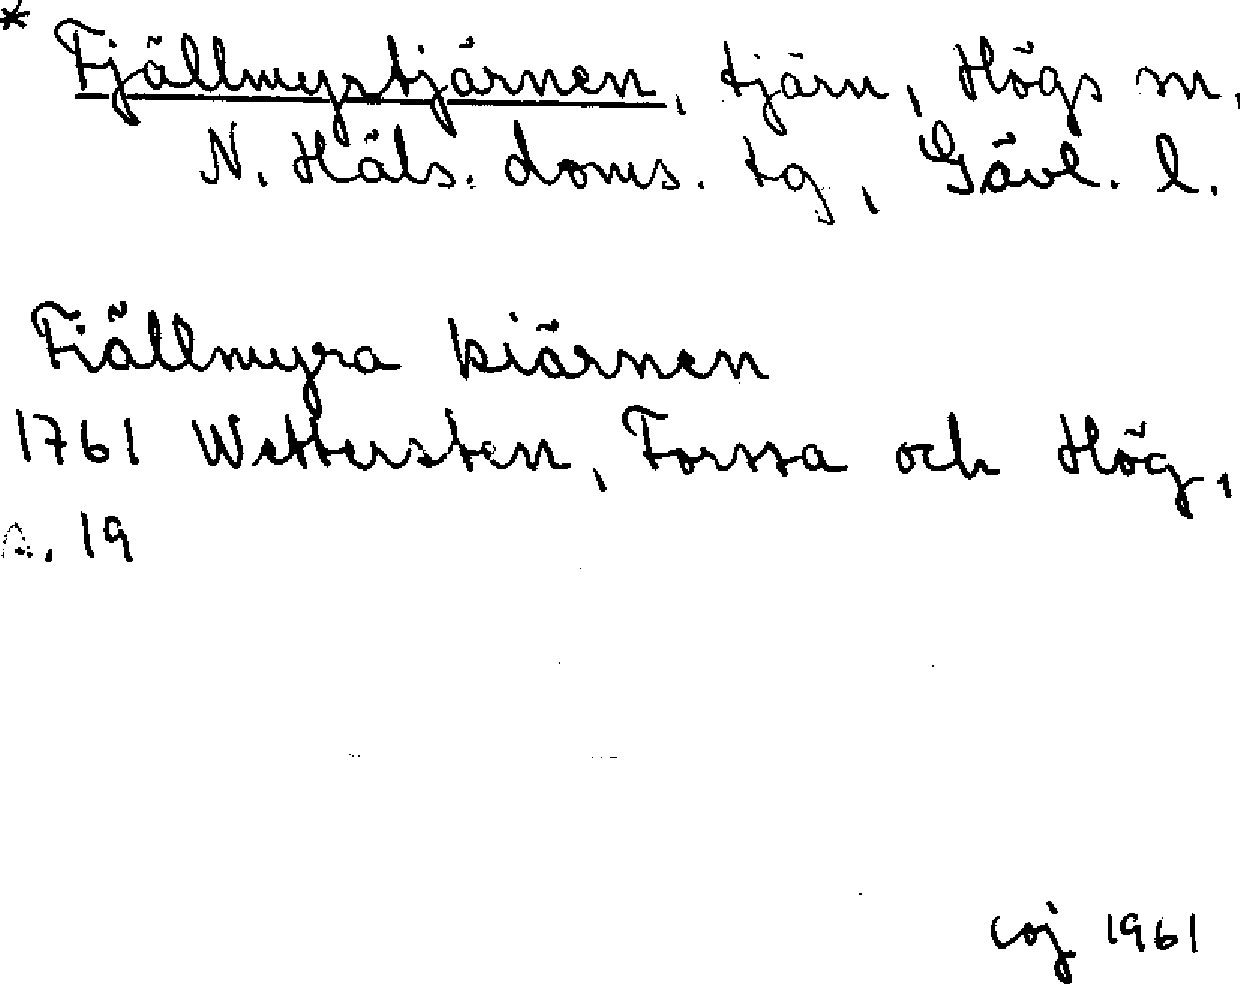 * Fjällmyrstjärnen, tjärn, Högs sn,
N. Häls. doms. tg, Gävl. l.
Fiällmyra kiärnen
1761 Wettersten, Forssa och Hög,
s. 19
coj 1961